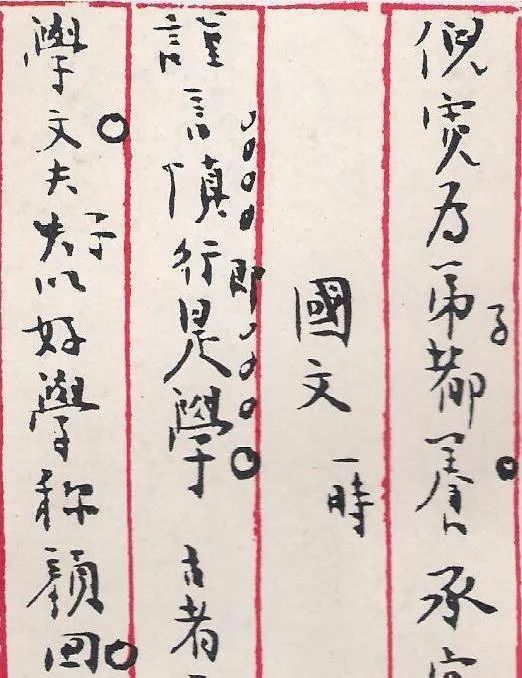 倪寬为弟子都養承
國文 一時
謹言慎行即是學 古者
學文夫子以好學称顏回